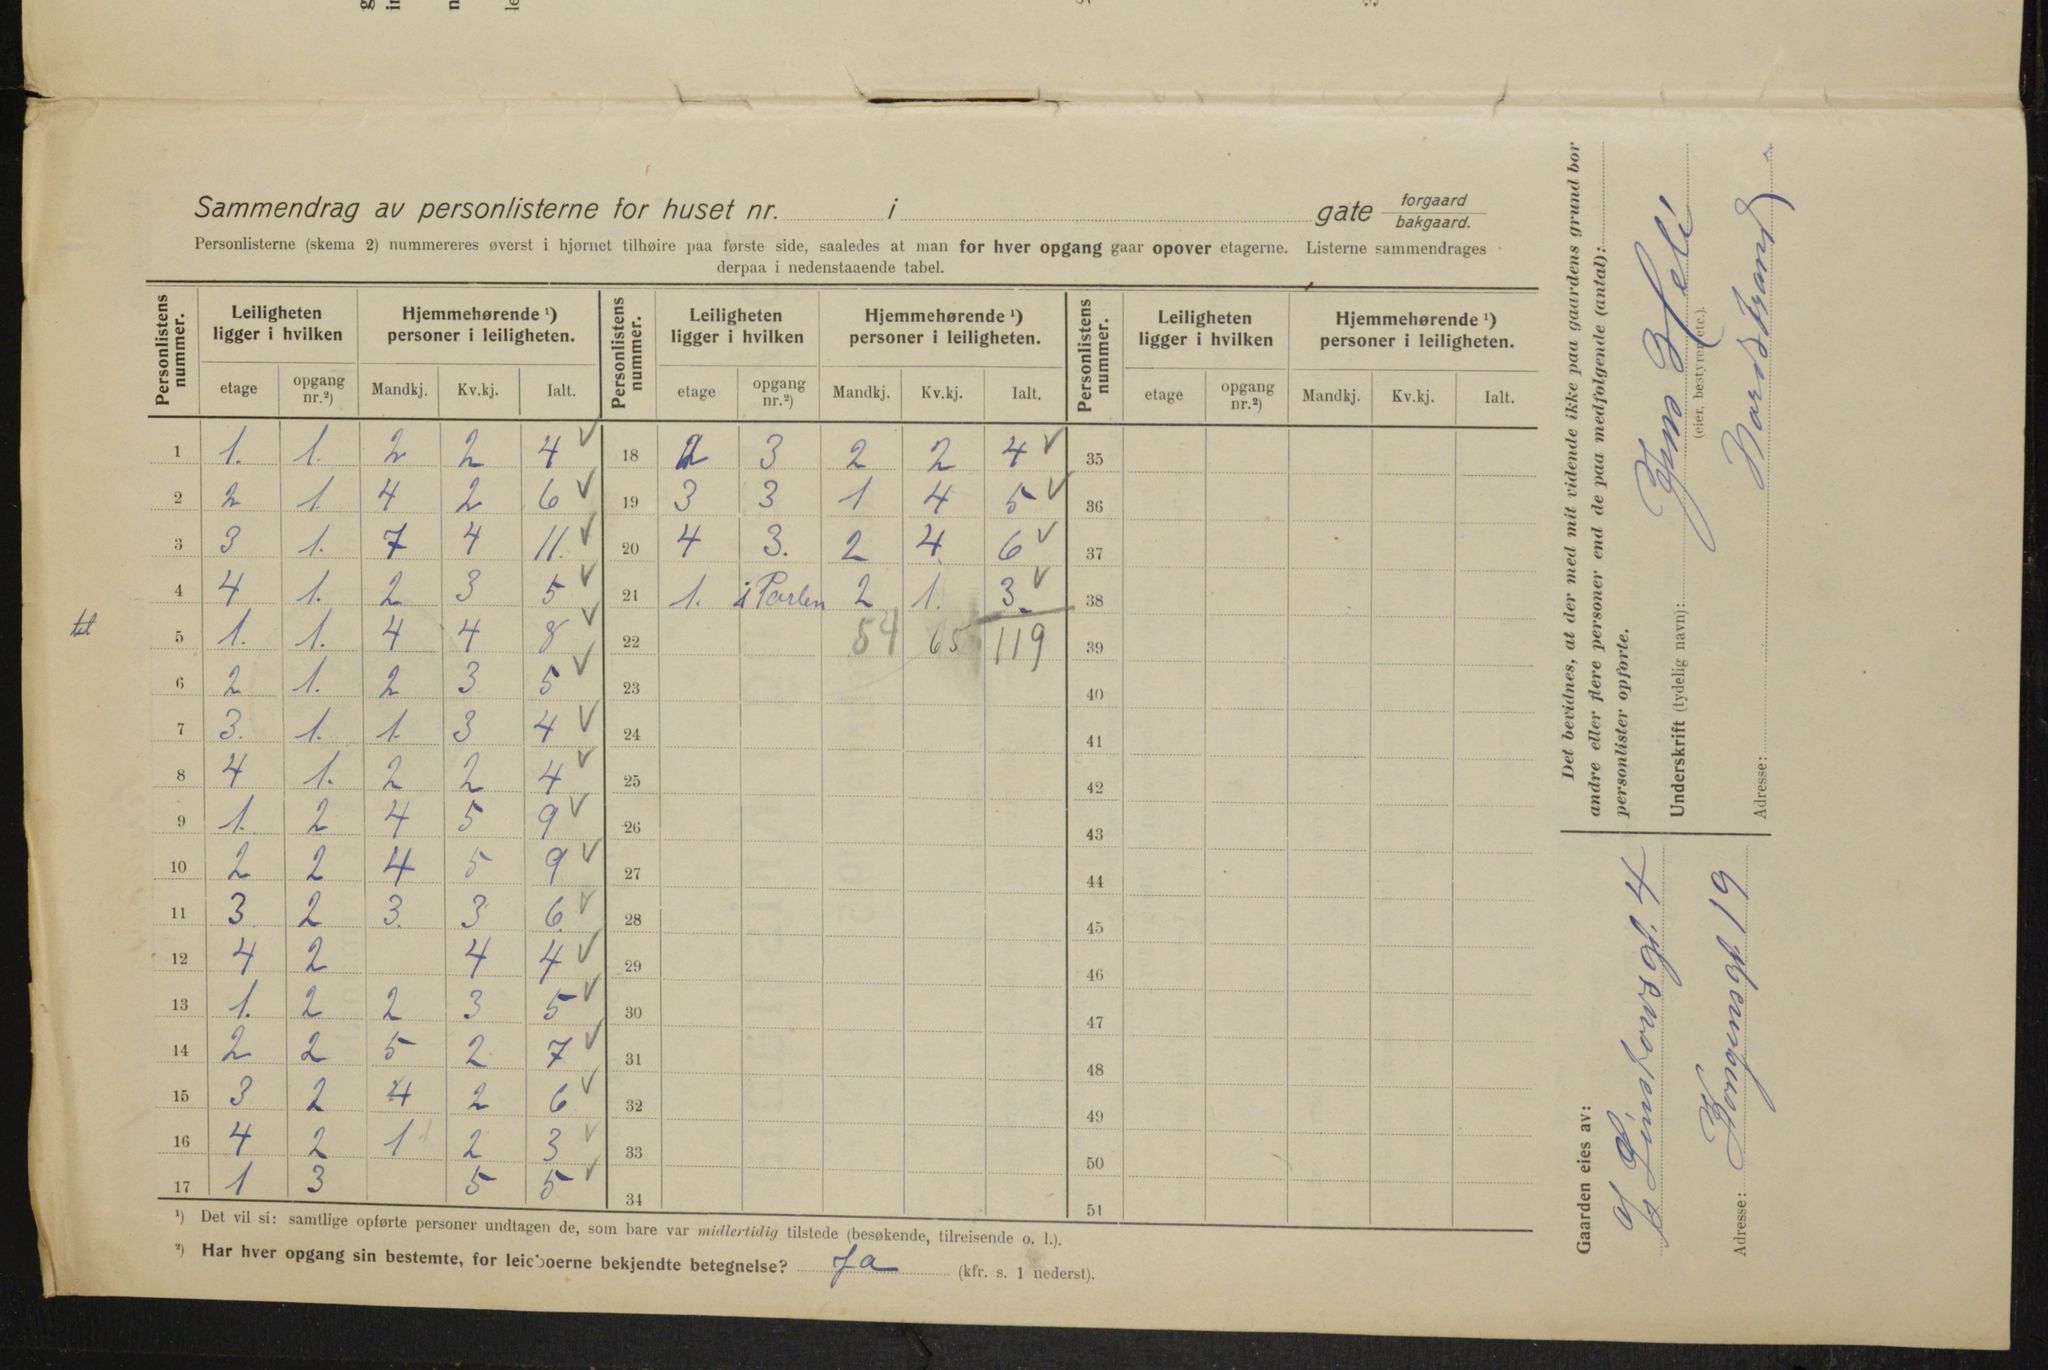 Sammendrag av personlisterne for huset nr. i gate forgaard bakgaard.
Personlisterne (skema 2) nummereres øverst i hjørnet tilhøire paa første side, saaledes at man for hver opgang gaar opover etagerne. Listerne sammendrages
derpaa i nedenstaaende tabel.
Personlistens nummer. Leiligheten ligger i hvilken Hjemmehørende ¹) personer i leiligheten. Personlistens nummer. Leiligheten ligger i hvilken Hjemmehørende ¹) personer i leiligheten. Personlistens nummer. Leiligheten ligger i hvilken Hjemmehørende ¹) personer i leiligheten.
etage opgang nr.²) Mandkj. Kv.kj. Ialt. etage opgang nr.²) Mandkj. Kv.kj. Ialt. etage opgang nr.²) Mandkj. Kv.kj. Ialt.
1 1. 1. 2 2 4 ✓ 18 2 3 2 2 4 ✓ 35
2 2 1. 4 2 6 ✓ 19 3 3 1 4 5 ✓ 36
3 3 1. 7 4 11. ✓ 20 4 3. 2 4 6 ✓ 37
4 4 1. 2 3 5 ✓ 21 1. i Porten 2 1. 3. ✓ 38
tet 5 1. 1. 4 4 8 ✓ 22 54 65 119 39
6 2 1. 2 3 5 ✓ 23 40
7 3. 1. 1. 3 4 ✓ 24 41
8 4 1. 2 2 4 ✓ 25 42
9 1. 2 4 5 9 ✓ 26 43
10 2 2 4 5 9 ✓ 27 44
11 3. 2 3. 3 6. ✓ 28 45
12 4 2 4 4 ✓ 29 46
13 1. 2 2 3 5 ✓ 30 47
14 2 2 5 2 7 ✓ 31 48
15 3 2 4 2 6. ✓ 32 49
16 4 2 1 2 3 ✓ 33 50
17 1 3 5 5 ✓ 34 51
¹) Det vil si: samtlige opførte personer undtagen de, som bare var midlertidig tilstede (besøkende, tilreisende o. l.).
²) Har hver opgang sin bestemte, for leieboerne bekjendte betegnelse? Ja (kfr. s. 1 nederst).
Det bevidnes, at der med mit vidende ikke paa gaardens grund bor
andre eller flere personer end de paa medfølgende (antal):
personlister opførte.
Underskrift (tydelig navn): Jens
(eier, bestyrer etc.).
Adresse: Nordstrand
Gaarden eies av:
gt. 4
Adresse: Kongensgt 19